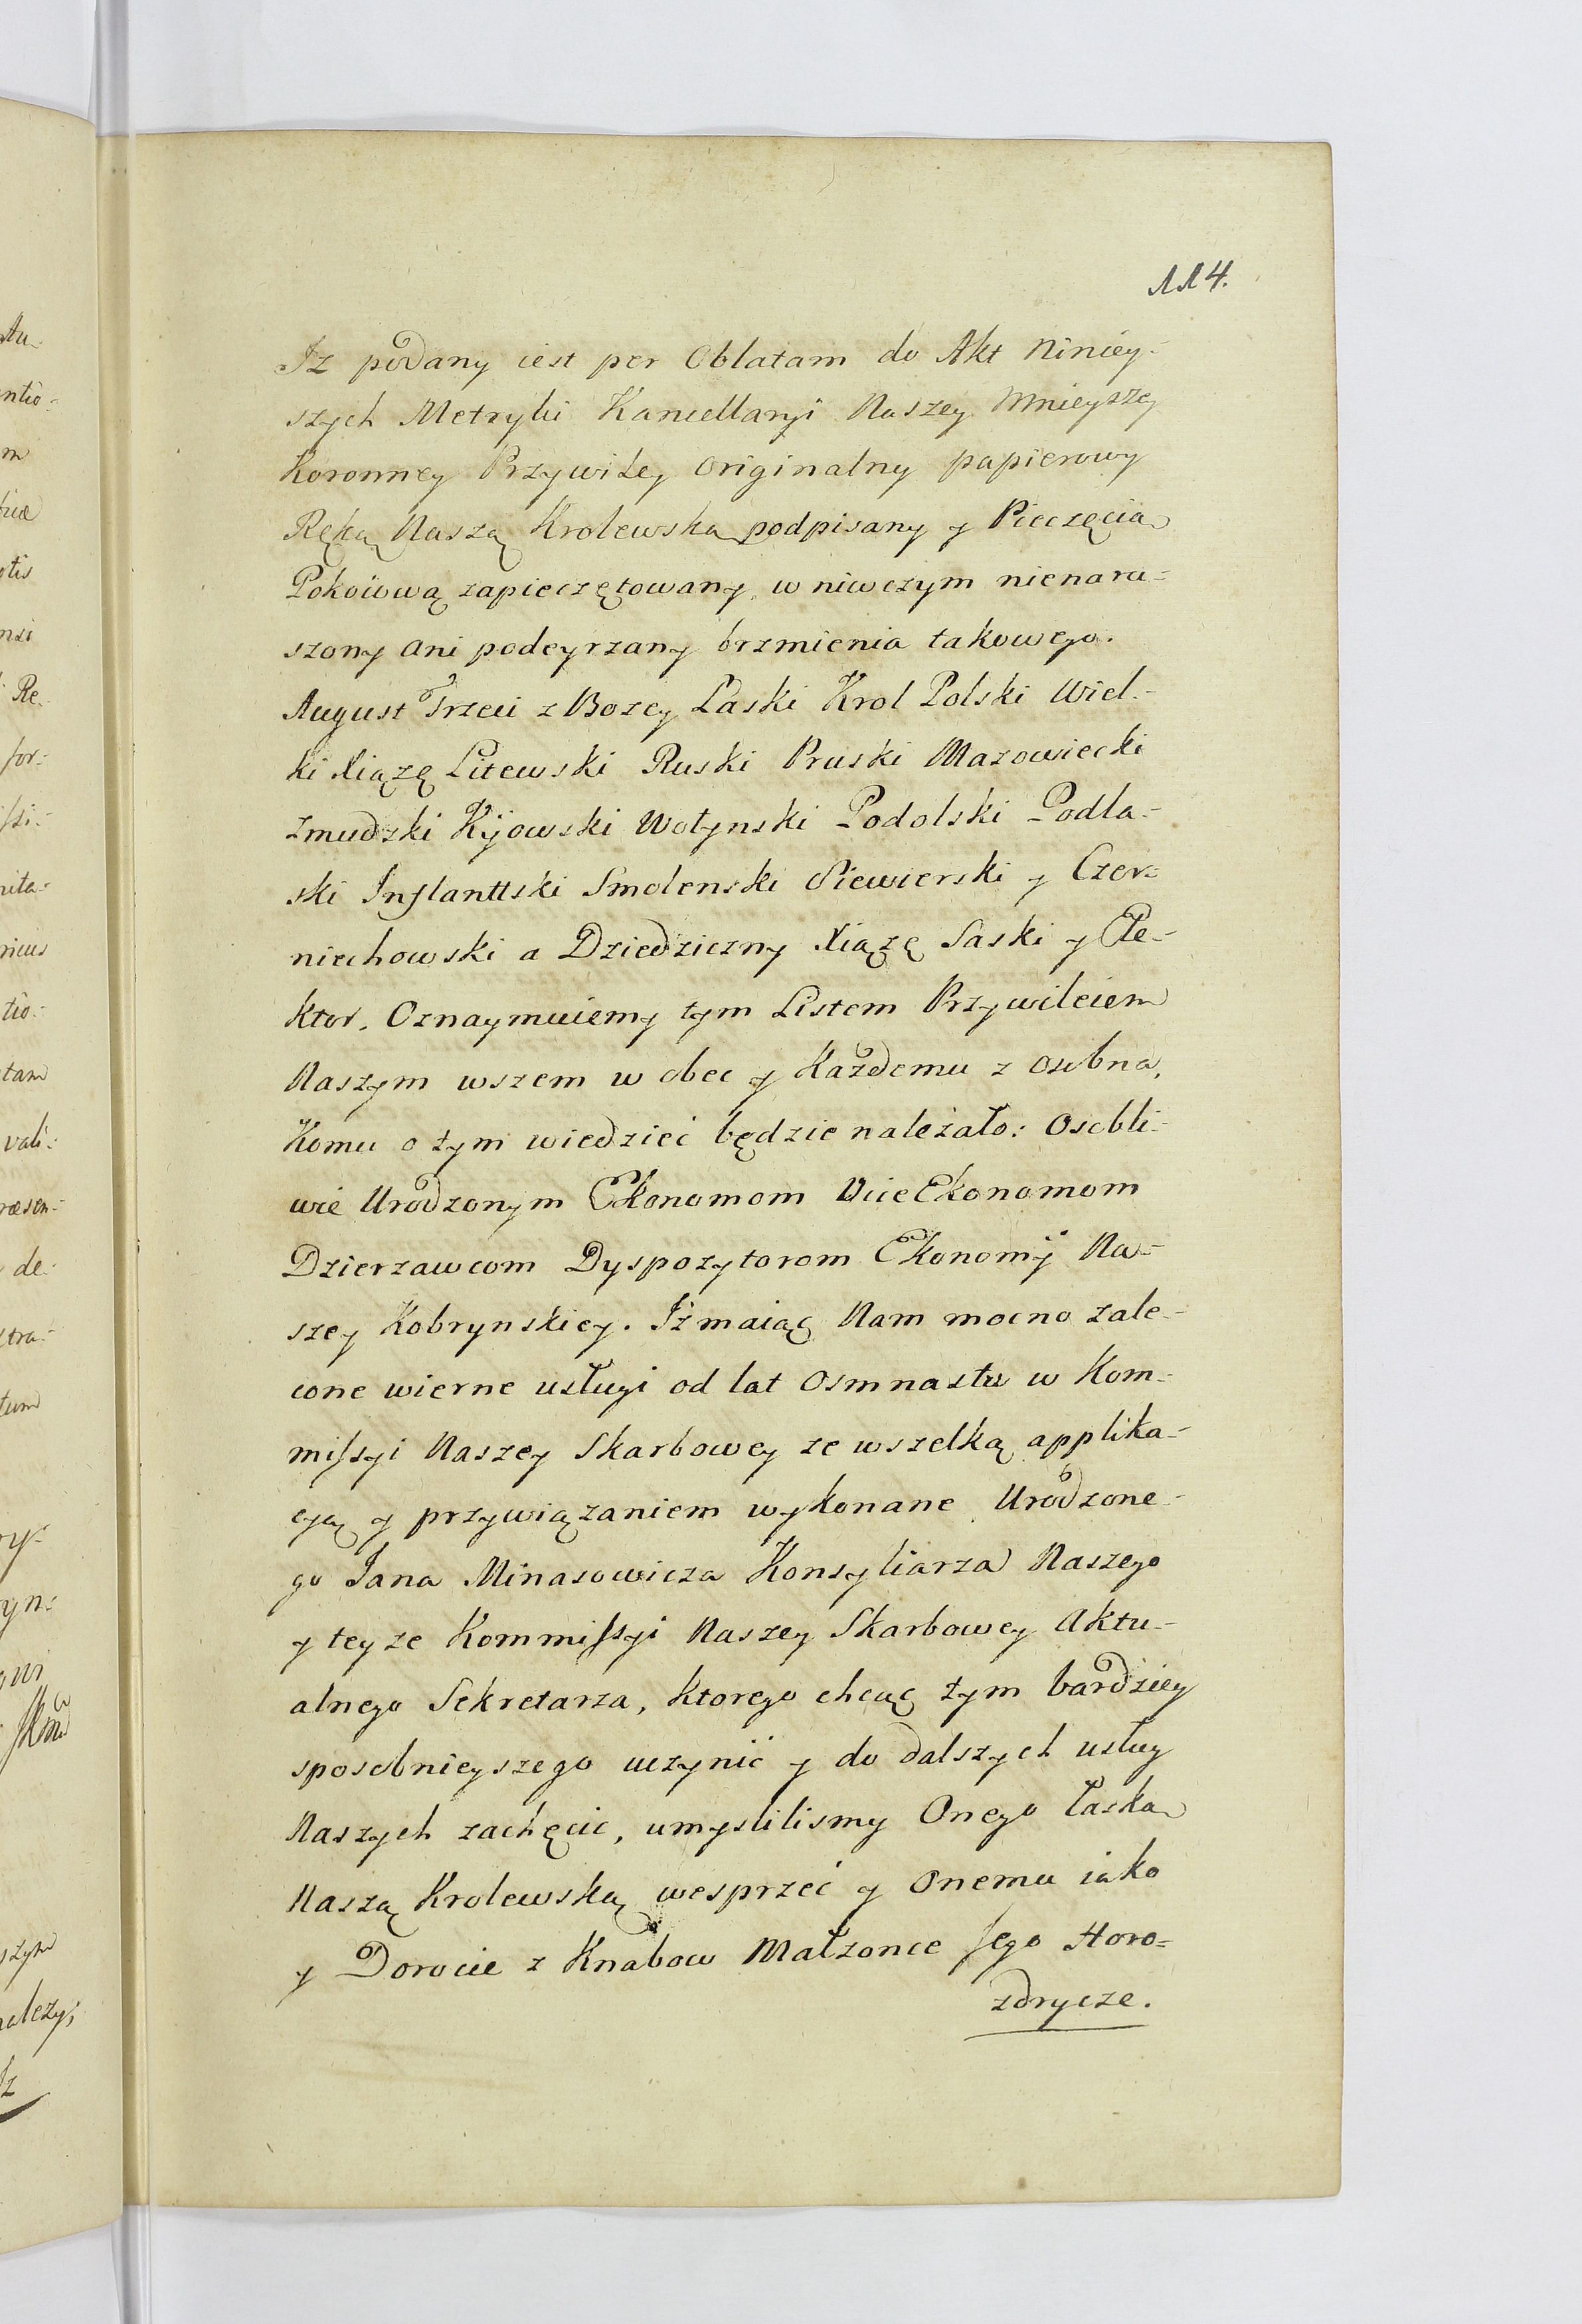 114.
Iz podany iest per Oblatam do Akt Niniey-
szych Metryki Kancellaryi Naszey Mnieyszey
Koronney Przywiley Originalny papierowy
Ręką Naszą Krolewską podpisany y Pieczęcią
Pokoiową zapieczętowany, w niwczym nienaru-
szony ani podeyrzany brzmienia takowego.
August Trzeci z Bozey Łaski Krol Polski Wiel-
ki Xiązę Litewski Ruski Pruski Mazowiecki
Zmudzki Kijowski Wołynski Podolski Podla-
ski Inflanttski Smolenski Siewierski y Czer-
niechowski a Dziedziczny Xiązę Saski y Ele-
ktor. Oznaymuiemy tym Listem Przywileiem
Naszym wszem w obec y Każdemu z osobna,
Komu o tym wiedzieć będzie należało: Osobli-
wie Urodzonym Ekonomom ViceEkonomom
Dzierzawcom Dyspozytorom Ekonomij Na-
szey Kobrynskiey. Iż maiąc Nam mocno zale-
cone wierne usługi od lat Osmnastu w Kom-
missyi Naszey Skarbowey ze wszelką applika-
cyą y przywiązaniem wykonane Urodzone-
go Jana Minasowicza Konsyliarza Naszego
y teyze Kommissyi Naszey Skarbowey Aktu-
alnego Sekretarza, ktorego chcąc tym bardziey
sposobnieyszego uczynić y do dalszych usług
Naszych zachęcic, umyslilismy Onego Łaską
Naszą Krolewską wesprzeć y Onemu iako
y Dorocie z Knabow Małzonce Jego Horo-
zdrycze.